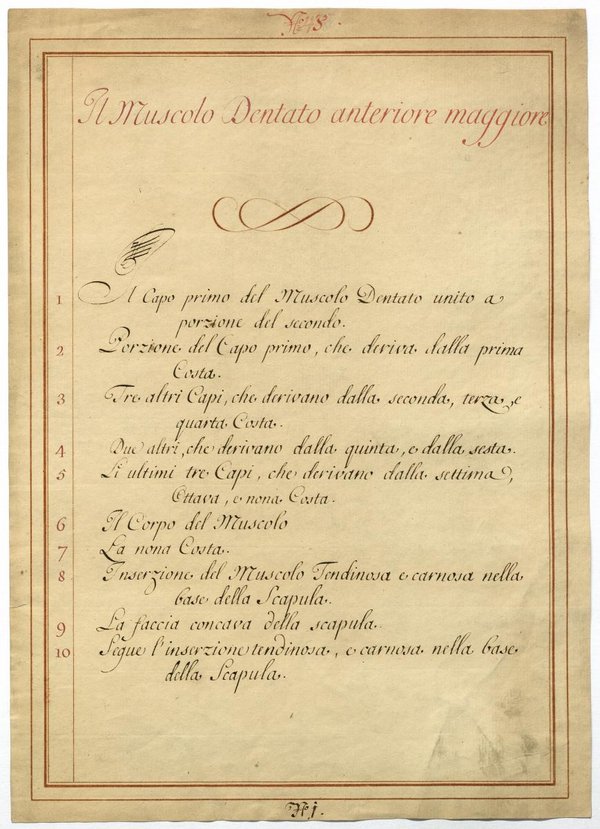 N.º 8.
Il Muscolo Dentato anteriore maggiore
1 Il Capo primo del Muscolo Dentato unito a
porzione del secondo.
2 Porzione del Capo primo, che deriva dalla prima
Costa.
3 Tre altri Capi, che derivano dalla seconda, terza, e
quarta Costa.
4 Due altri, che derivano dalla quinta, e dalla sesta.
5 Li ultimi tre Capi, che derivano dalla settima,
Ottava, e nona Costa.
6 Il Corpo del Muscolo
7 La nona Costa.
8 Inserzione del Muscolo Tendinosa e carnosa nella
base della Scapula.
9 La faccia concava della scapula.
10 Segue l'inserzione tendinosa, e carnosa nella base
della Scapula.